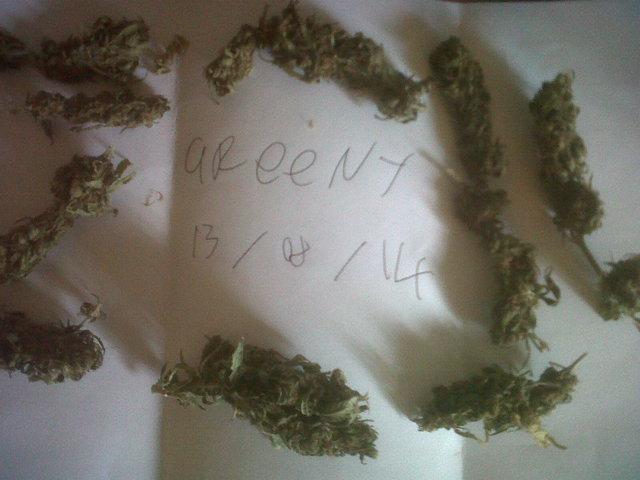 GReeNY
13/08/14